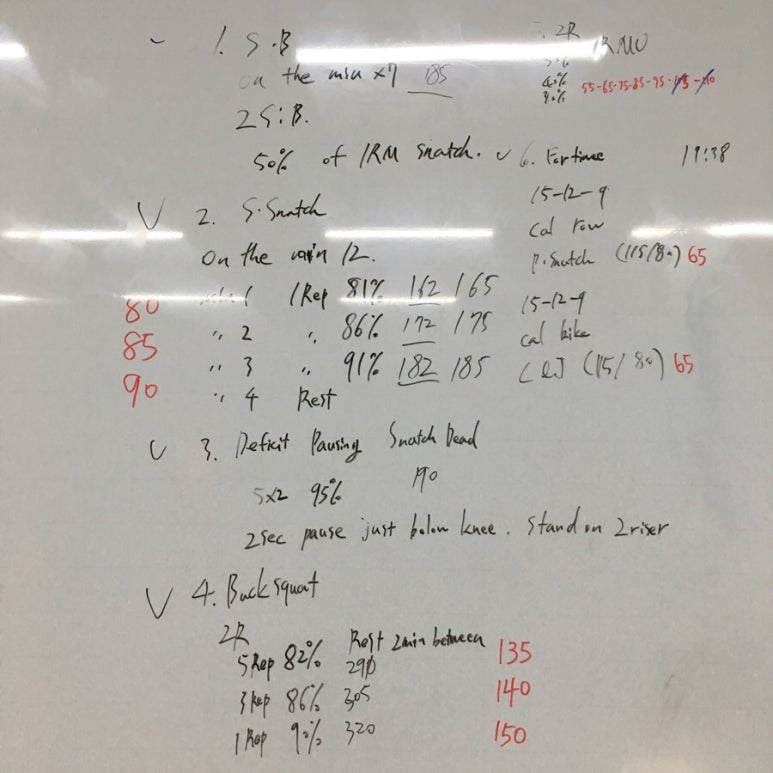 1. S.B
on the min x7 185
2 S:B.
50% of 1RM snatch.
2. S.Snatch
On the min 12.
80 1 1Rep 81% 162 165
85 " 2 " 86% 172 175
90 " 3 " 91% 182 185
" 4 Rest
3. Deficit Pausing Snatch Dead
5x2 95% 190
2sec pause just below knee. Stand on 2riser
4. Back squat
2R
Rest 2min between
5Rep 82% 290 135
3Rep 86% 305 140
1Rep 90% 320 150
2R
1RMU
55-65-75-85-95-
6. For time 19:38
15-12-9
Cal row
P.Snatch (115/80) 65
15-12-9
Cal bike
C&J (115/80) 65